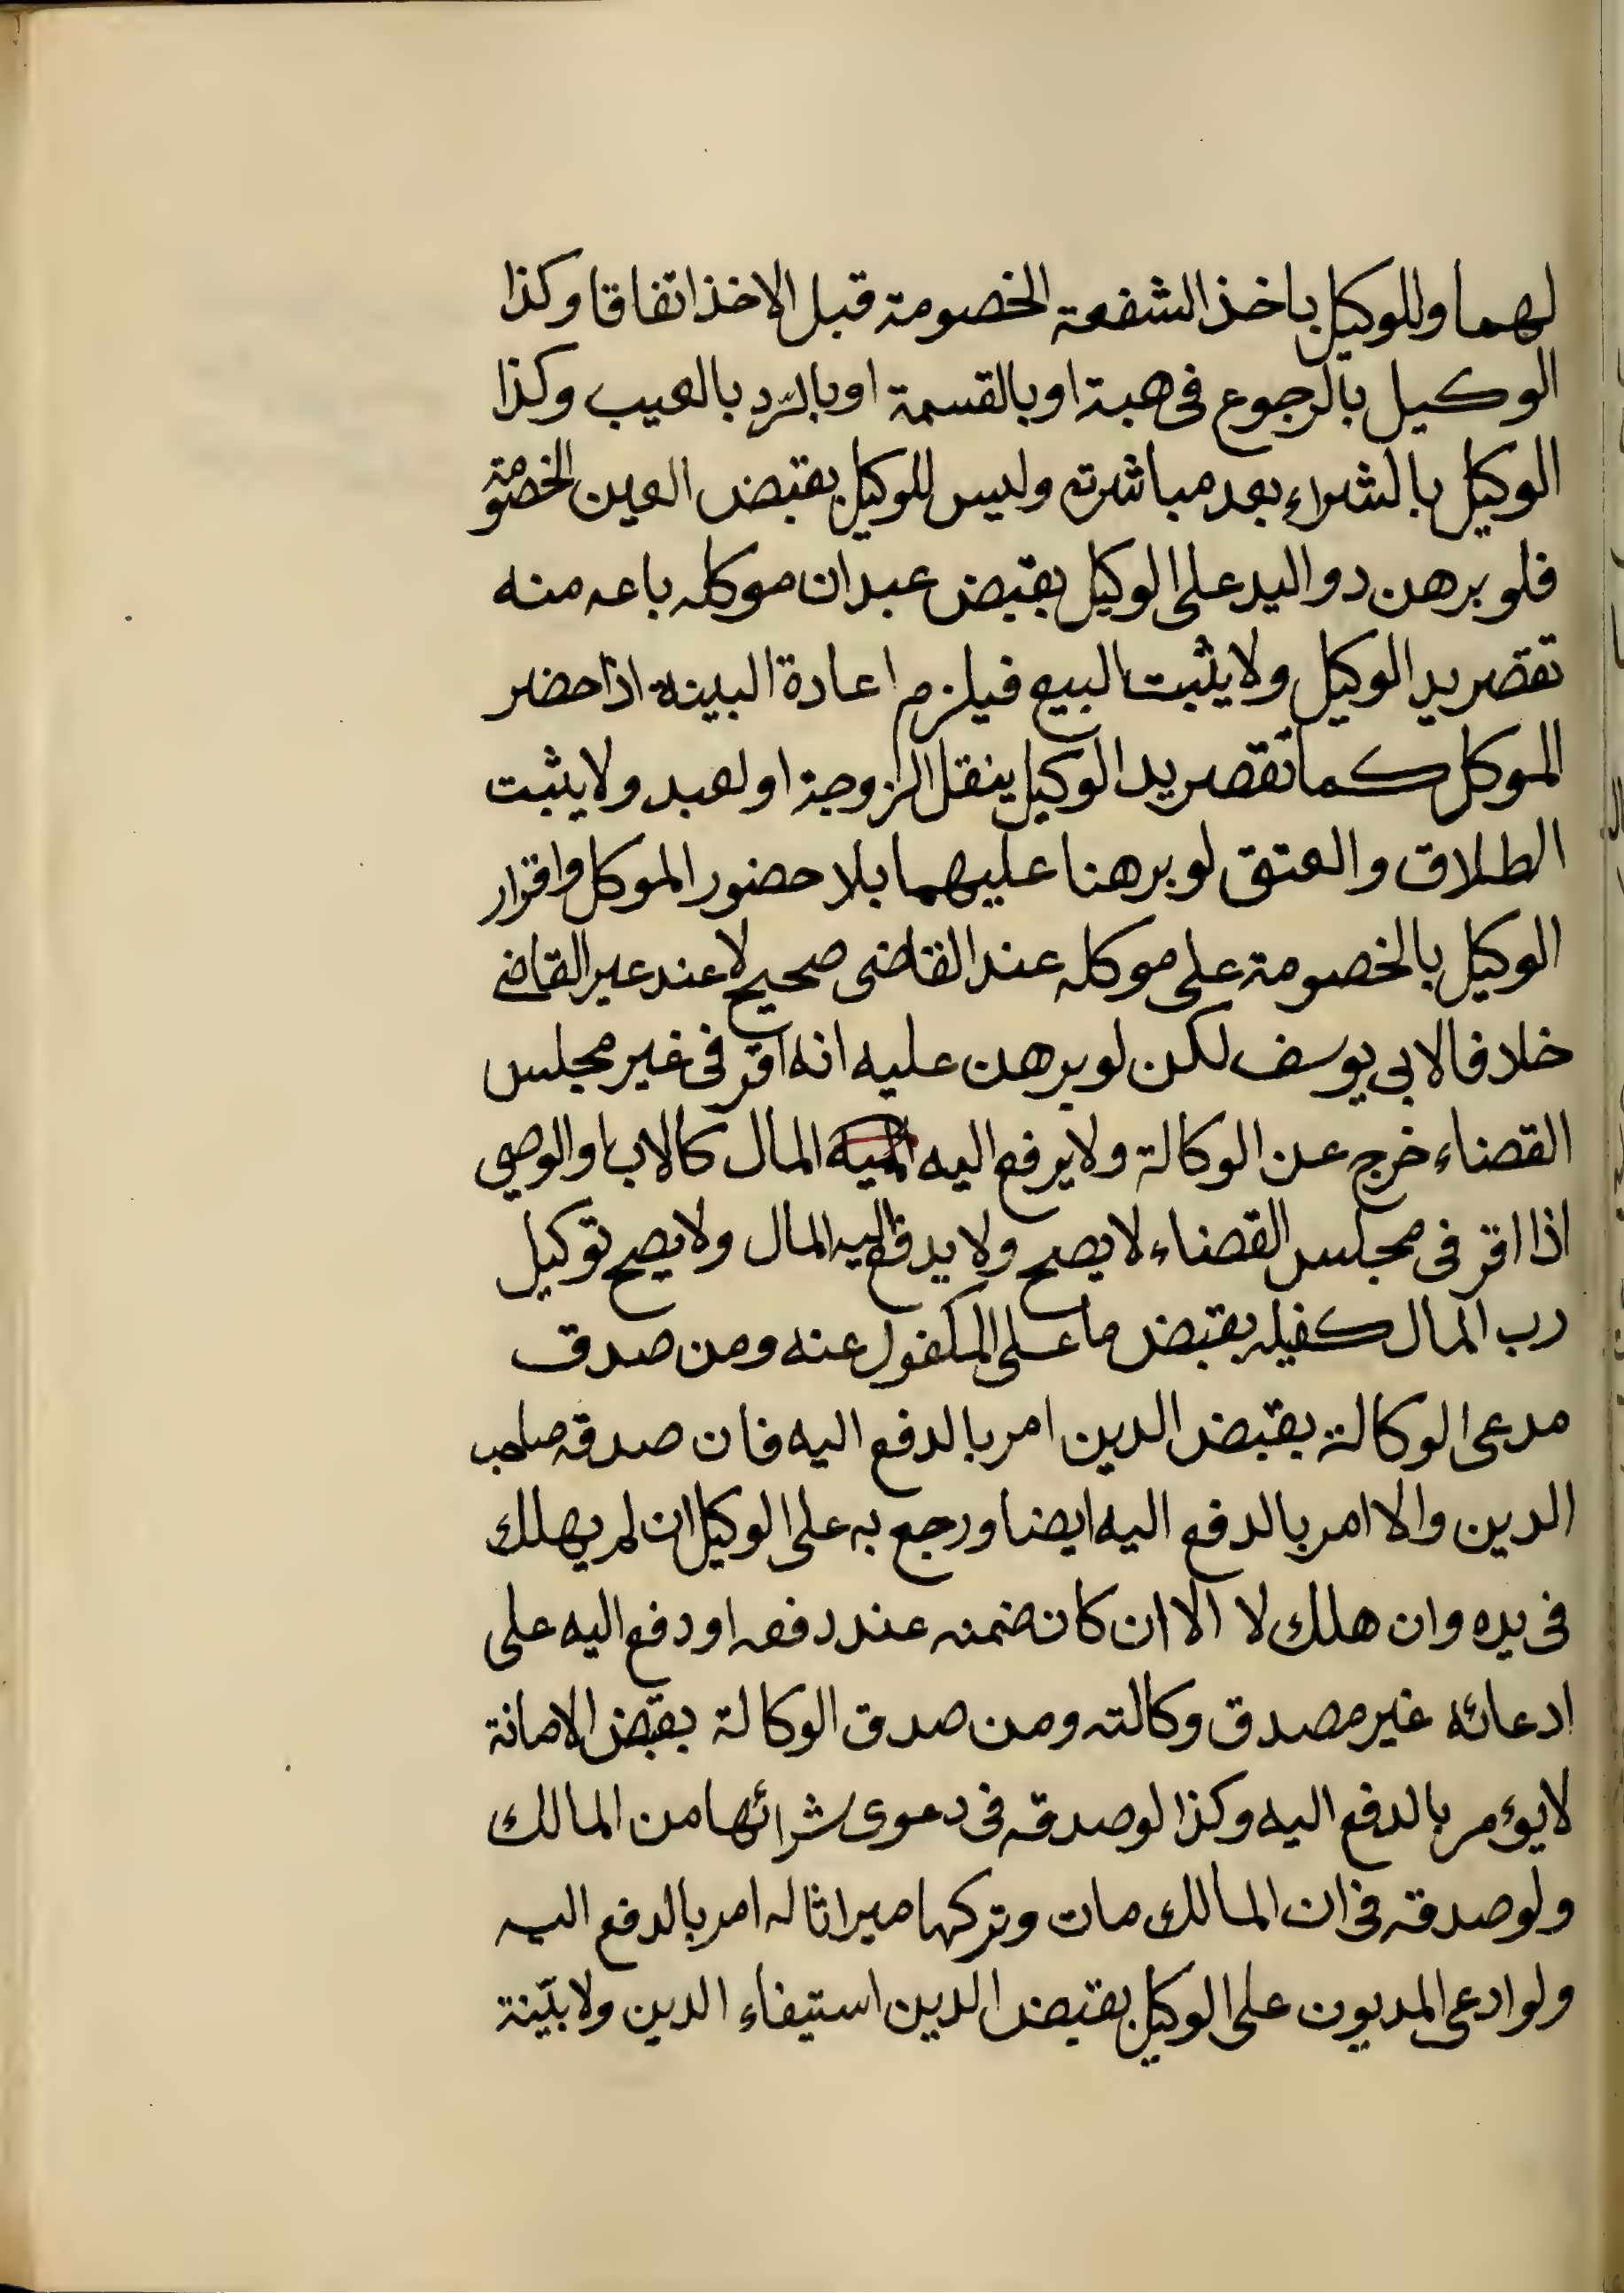 لهما وللوكيل باخذ الشفعة الخصومة قبل الاخذ اتفاقا وكذا
الوكيل بالرجوع فى هبة او بالقسمة او بالرّد بالعيب وكذا
الوكيل بالشراء بعد مباشرته وليس للوكيل بقبض العين الخصومة
فلو برهن دو اليد على الوكيل بقبض عبد ان موكله باعه منه
تقصر يد الوكيل ولا يثبت البيع فيلزم اعادة البينة اذا حضر
الموكل كما تقصر يد الوكيل ينقل الزوجة او لعبد ولا يثبت
الطلاق والعتق لو برهنا عليهما بلا حضور الموكل واقرار
الوكيل بالخصومة على موكله عند القاضى صحيح لا عند عير القاضى
خلافا لابى يوسف لكن لو برهن عليه انه اقر فى غير مجلس
القضاء خرج عن الوكالة ولا يرفع اليه المال كالاب والوصى
اذا اقر فى مجلس القضاء لا يصح ولا يدفع اليه المال ولا يصح توكيل
رب المال كفيله بقبض ما على المكفول عنه ومن صدق
مدعى الوكالة بقبض الدين امر بالدفع اليه فان صدقه صاحب
الدين والا امر بالدفع اليه ايضا ورجع به على الوكيل ان لم يهلك
فى يده وان هلك لا الا ان كان ضمنه عند دفعه او دفع اليه على
ادعائه غير مصدق وكالته ومن صدق الوكالة بقبض الامانة
لا يؤمر بالدفع اليه وكذا لو صدقه فى دعوى شرائها من المالك
ولو صدقه فى ان المالك مات وتركها ميراثا له امر بالدفع اليه
ولو ادعى المديون على الوكيل بقبض الدين استيفاء الدين ولا بيّنة